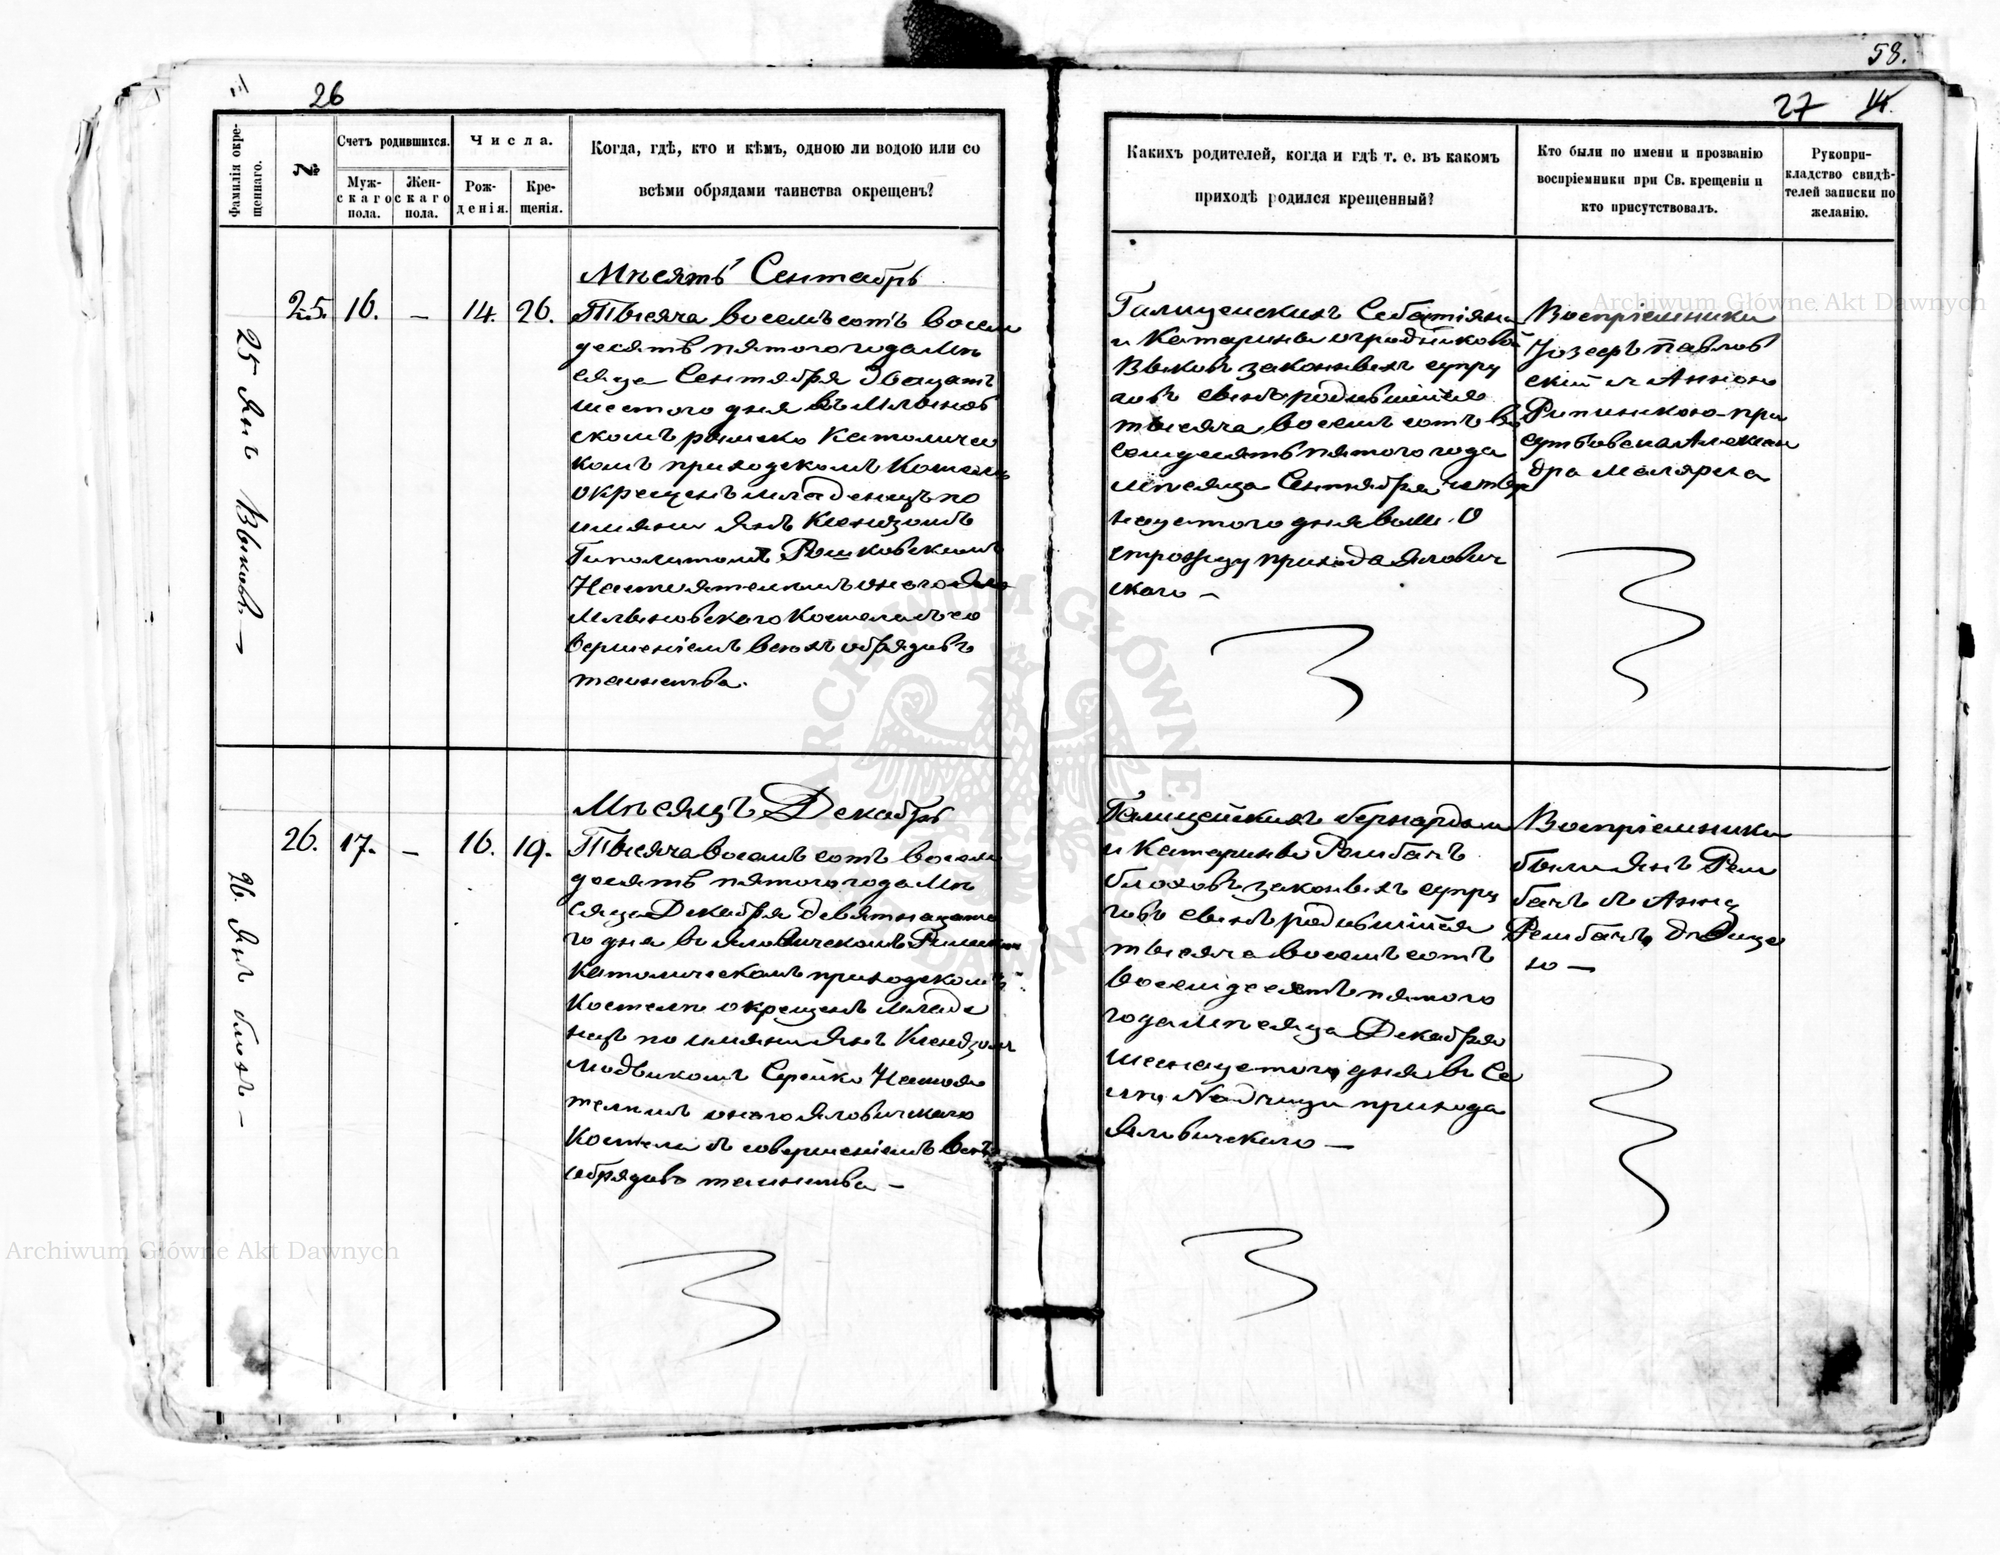 58.
26
27
Фамилія окре-
щеннаго.
№
Счетъ родившихся.
Муж-
скаго
пола.
Жен-
скаго
пола.
Числа.
Рож-
денія.
Кре-
щенія.
Когда, гдѣ, кто и кѣмъ, одною ли водою или со
всѣми обрядами таинства окрещенъ?
Какихъ родителей, когда и гдѣ т. е. въ какомъ
приходѣ родился крещенный?
Кто были по имени и прозванію
воспріемники при Св. крещеніи и
кто присутствовалъ.
Рукопри-
кладство свидѣ-
телей записки по
желанію.
25 Янъ Выковъ. —
25. 16. — 14. 26.
Мѣсятъ Сентабръ
Тысяча восемъсотъ восем
десятъ пятого года Мѣ
сяца Сентября двацатъ
шестого дня въ Млынов
скомъ рымско Католичес
комъ приходскомъ Костелѣ
окрещенъ младенецъ по
имяни Янъ Ксендзомъ
Гиполитомъ Рошковскимъ
Настоятелемъ оного
Млыновского Костела съ со
вершеніемъ всехъ обрядовъ
таинства.
Галицейскихъ Себатіяна
и Катарины огродниковой
Выковъ законныхъ супру
говъ сынъ родившійся
тысяча восемъ сотъ во
семдесятъ пятого года
мѣсяца Сентября четыр
нацатого дня вом. О
строжцу прихода Ялович
ского —
Воспріемники
Іозефъ Павлов
скій и Анною
Рипинкою при
сутствовала Алексан
дра Маляреа
26. Янъ блохъ —
26. 17. — 16. 19.
Мѣсяцъ Декабръ
Тысяча восемъ сотъ восем
десятъ пятого года Мѣ
сяца Декабря девятнацато
го дня въ Яловическомъ Римско
католическомъ приходскомъ
Костелѣ окрещенъ младе
нецъ по имяни Янъ Ксендзомъ
Людвикомъ Серейко Настоя
телемъ оного Яловичского
Костела съ совершеніемъ всехъ
обрядовъ таинства —
Галицейскихъ бернардом
и Катарины Рембачъ
блоховъ законыхъ супру
говъ сынъ родившійся
тысяча восемъ сотъ
восемдесятъ пятого
года мѣсяца Декабря
шеснацетого дня въ Се
лѣ Надчицы прихода
Яловичского —
Воспріемники
были Янъ Рем
бачъ съ Анна
Рембачъ дѣвице
ю —
Archiwum Główne Akt Dawnych
Archiwum Główne Akt Dawnych
ARCHIWUM GŁÓWNE
AKT DAWNYCH